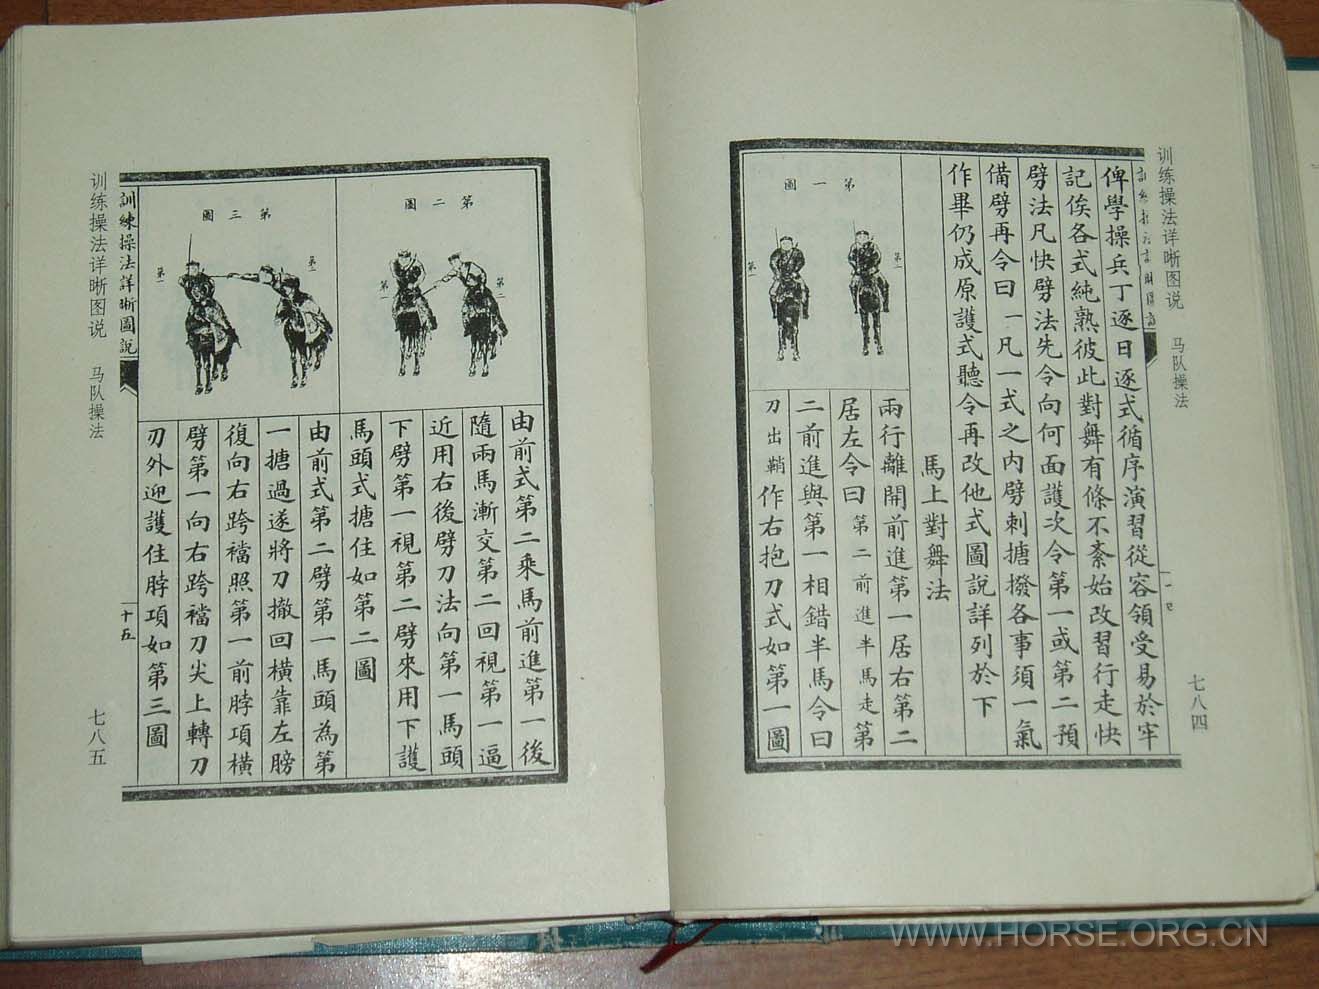 训练操法详晰图说 马队操法
七八四
俾學操兵丁逐日逐式循序演習從容領受易於牢
記俟各式純熟彼此對舞有條不紊始改習行走快
劈法凡快劈法先令向何面護次令第一或第二預
備劈再令曰一凡一式之内劈刺搪撥各事須一氣
作畢仍成原護式聽令再改他式圖說詳列於下
馬上對舞法
第一圖
第二
第一
兩行離開前進第一居右第二
居左令曰第二前進半馬走第
二前進與第一相錯半馬令曰
刀出鞘作右抱刀式如第一圖
第二圖
第二
第一
由前式第二乘馬前進第一後
隨兩馬漸交第二回視第一逼
近用右後劈刀法向第一馬頭
下劈第一視第二劈來用下護
馬頭式搪住如第二圖
第三圖
第二
第一
由前式第二劈第一馬頭為第
一搪過遂將刀撤回橫靠左膀
復向右跨襠照第一前脖項橫
劈第一向右跨襠刀尖上轉刀
刃外迎護住脖項如第三圖
訓練操法詳晰圖說
十五
训练操法详晰图说 马队操法
七八五
WWW.HORSE.ORG.CN